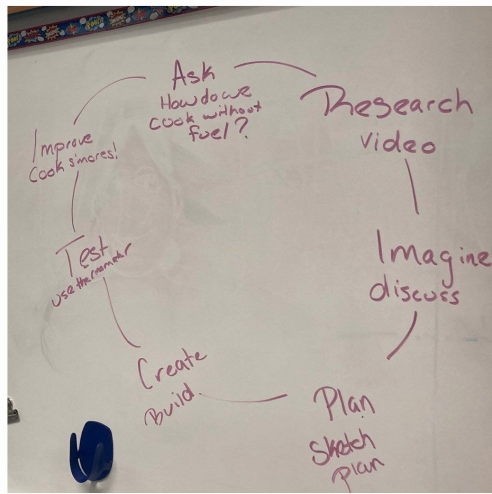 Ask
How do we
cook without
fuel?
Research
video
Imagine
discuss
Plan
sketch
plan
Create
Build
Test
use thermometer
Improve
Cook s'mores!